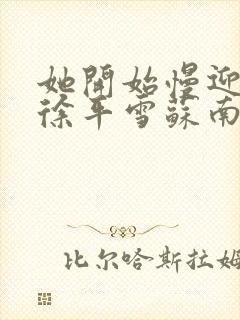 她開始慢迎
徐平雪蘇南
比尔哈斯拉姆